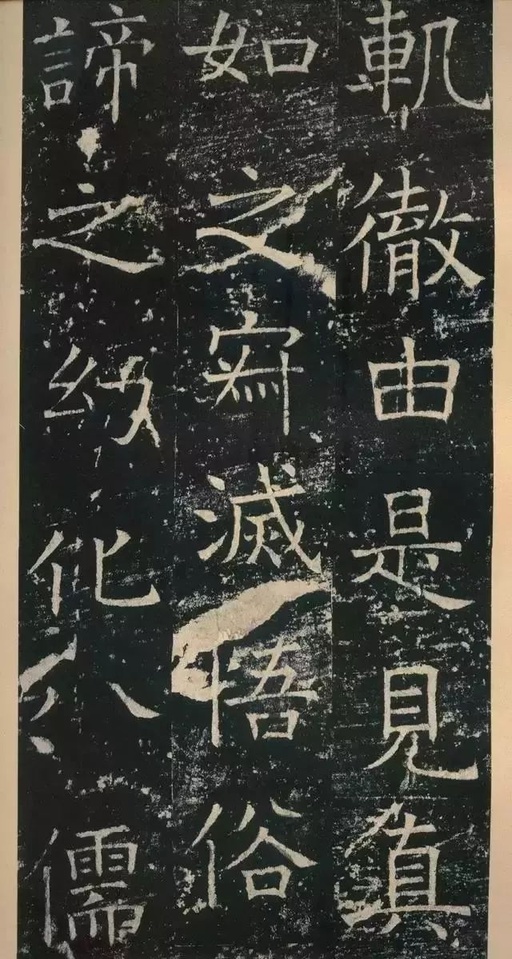 軌徹由是見真
如之寂滅悟俗
諦之幻化八儒